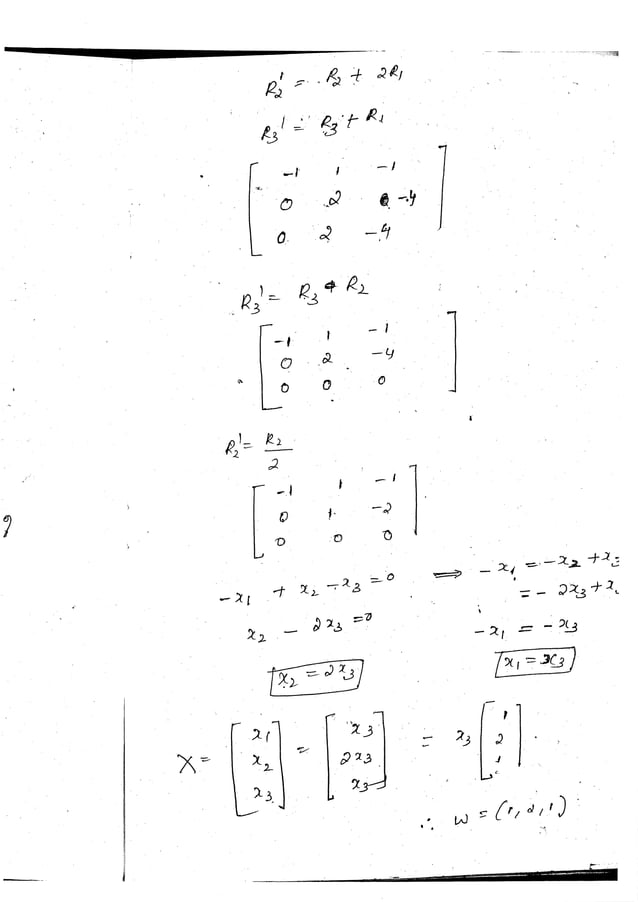 R2' = R2 + 2R1
R3' = R3 + R1
[ -1 1 -1
0 2 -4
0 2 -4 ]
R3' = R3 R2
[ -1 1 -1
0 2 -4
0 0 0 ]
R2' = R2/2
[ -1 1 -1
0 1 -2
0 0 0 ]
-x1 + x2 - x3 = 0 ⟹ -x1 = -x2 + x3
x2 - 2x3 = 0 = - 2x3 + x
-x1 = -x3
x2 = 2x3 x1 = x3
X = [ x1 x2 x3 ] = [ x3 2x3 x3 ] = x3 [ 1 2 1 ]
∴ w = (1, 2, 1)